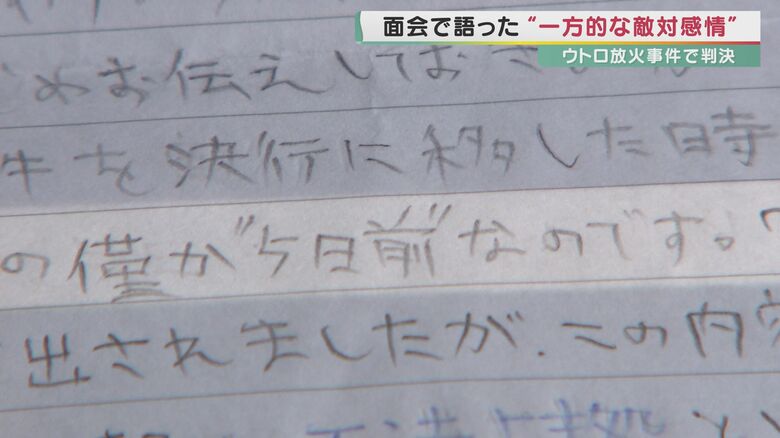 面会で語った“一方的な敵対感情”
ウトロ放火事件で判決
お伝えしてお
件を決行に移した時
の僅か“5日前”なのです。
出されましたが、この内